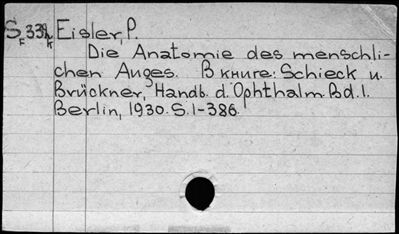 S 33a Eisler, P.
F k
Die Anatomie des menschli-
chen Auges. В книге: Schieck u.
Brückner, Handb. d. Ophthalm. Bd. 1.
Berlin, 1930. S. 1-386.